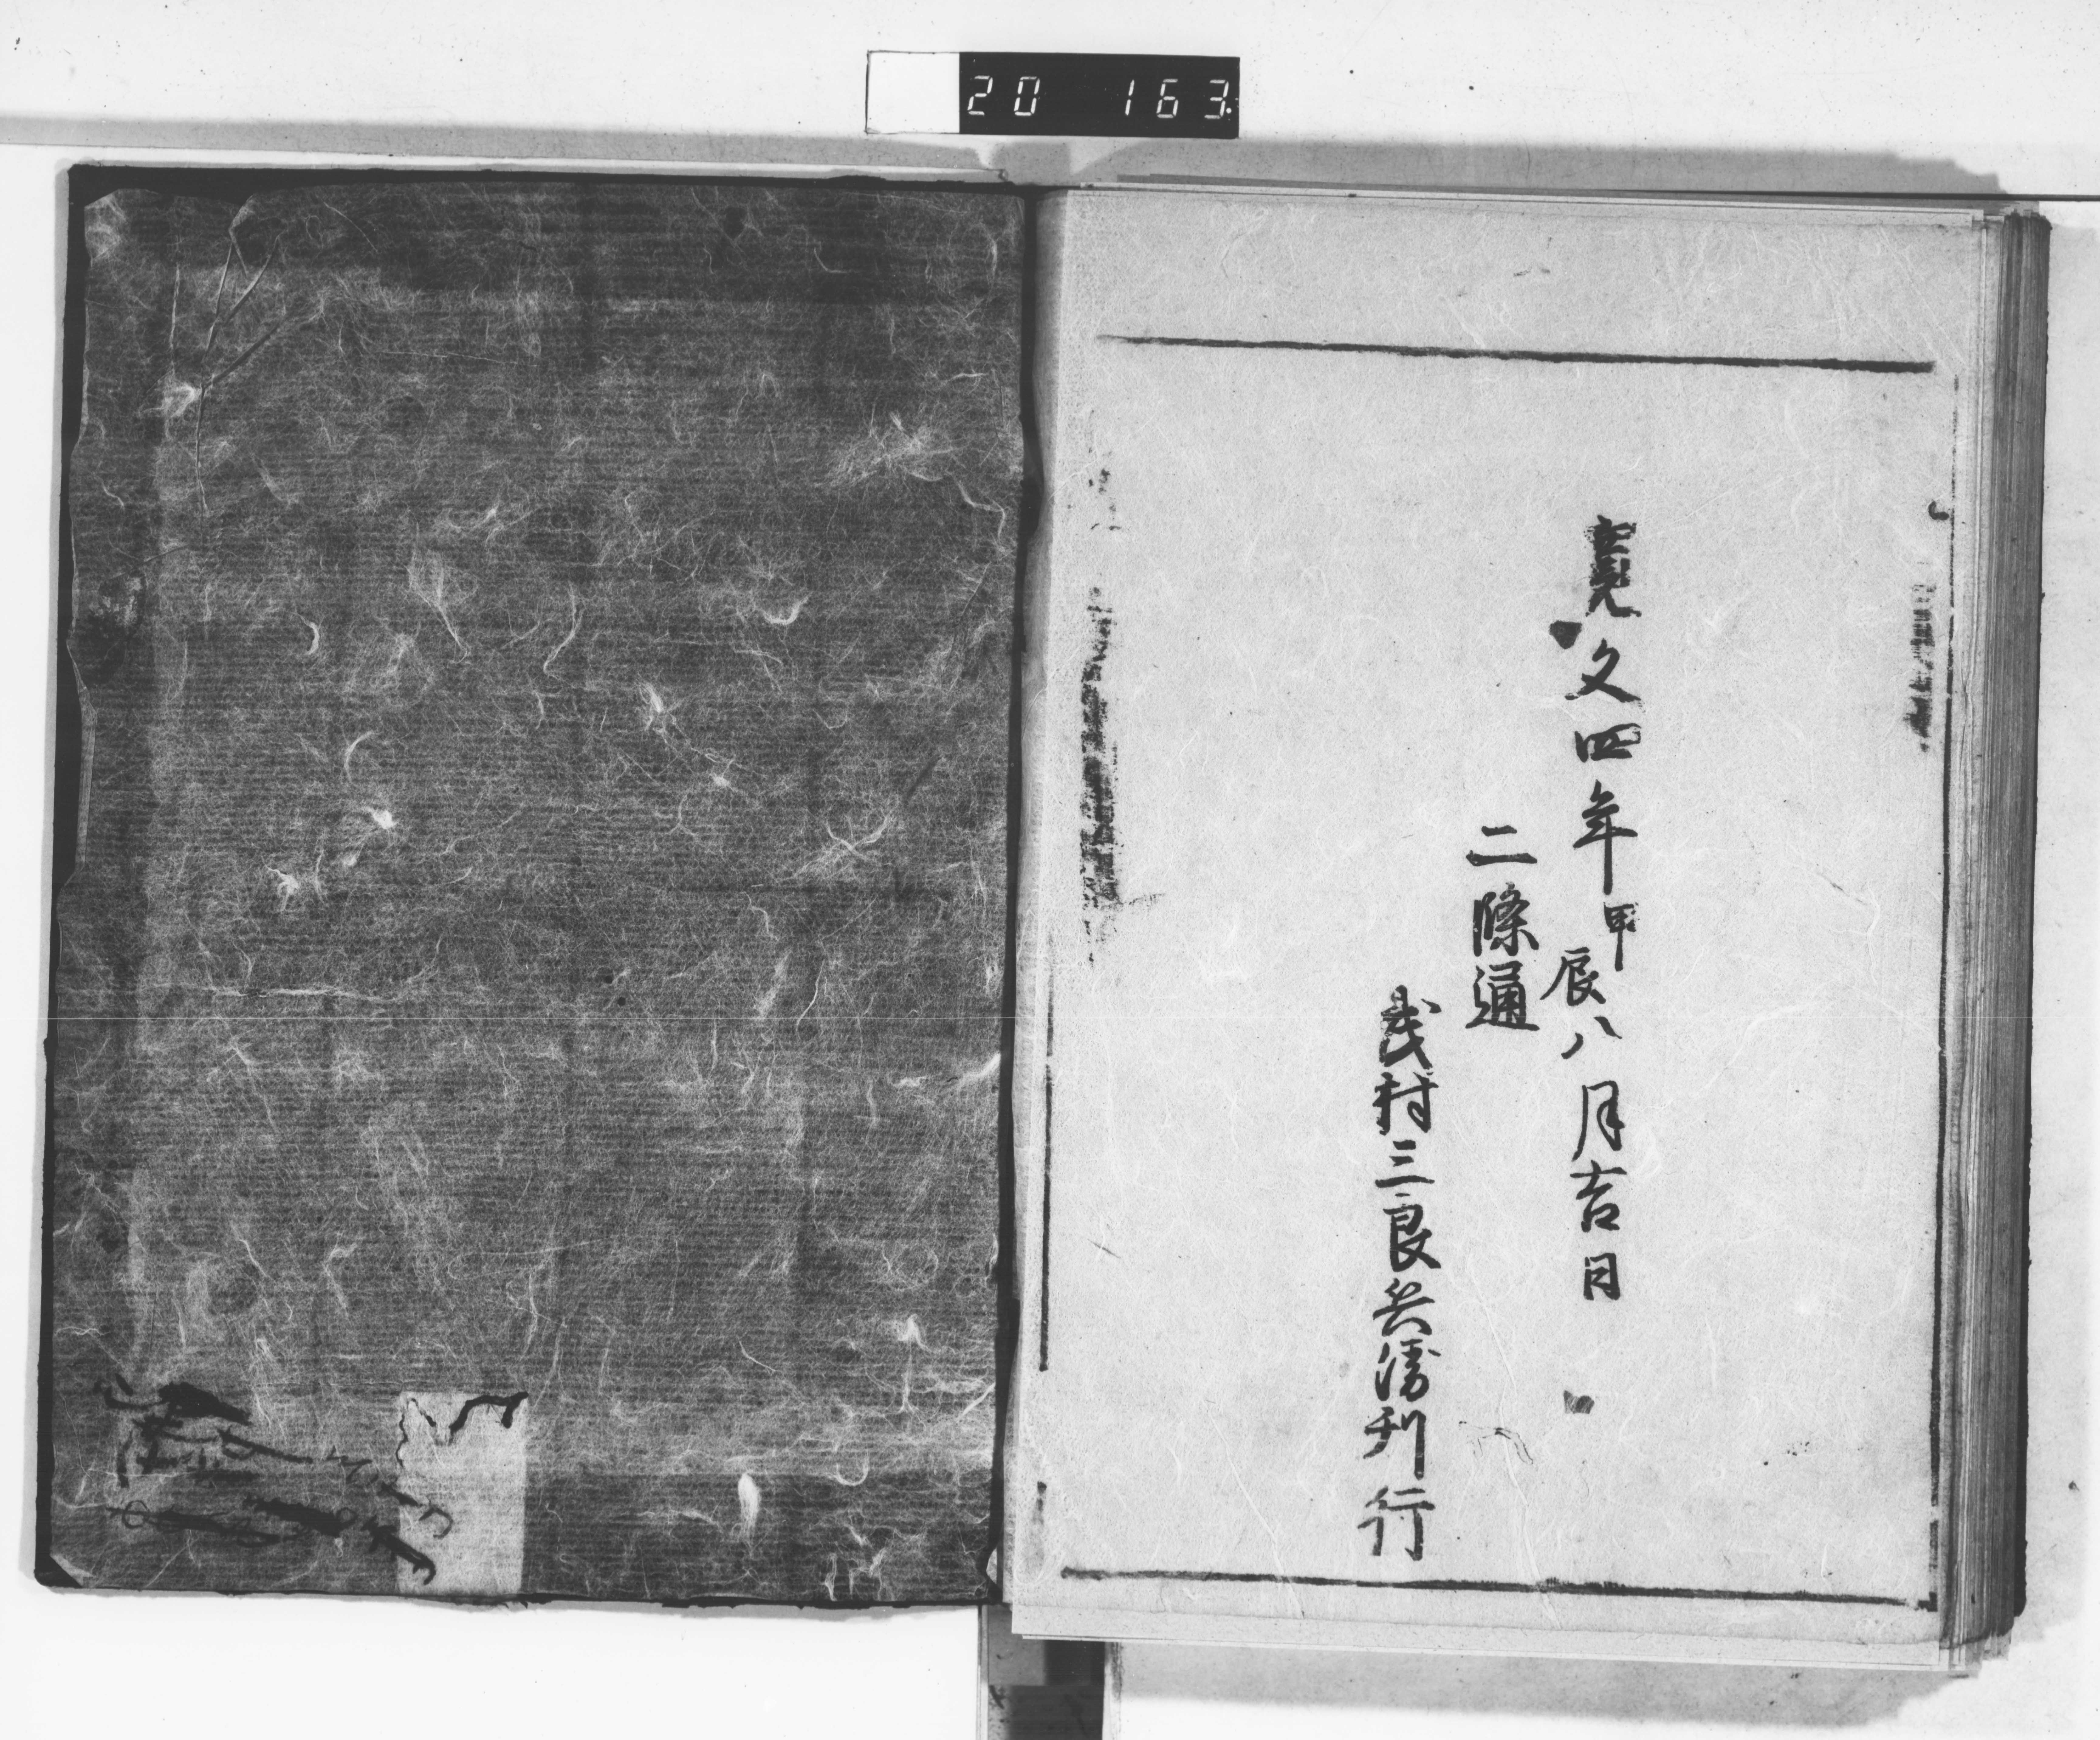 20 163
寛文四年甲辰八月吉日
二條通
武村三良兵衛刊行